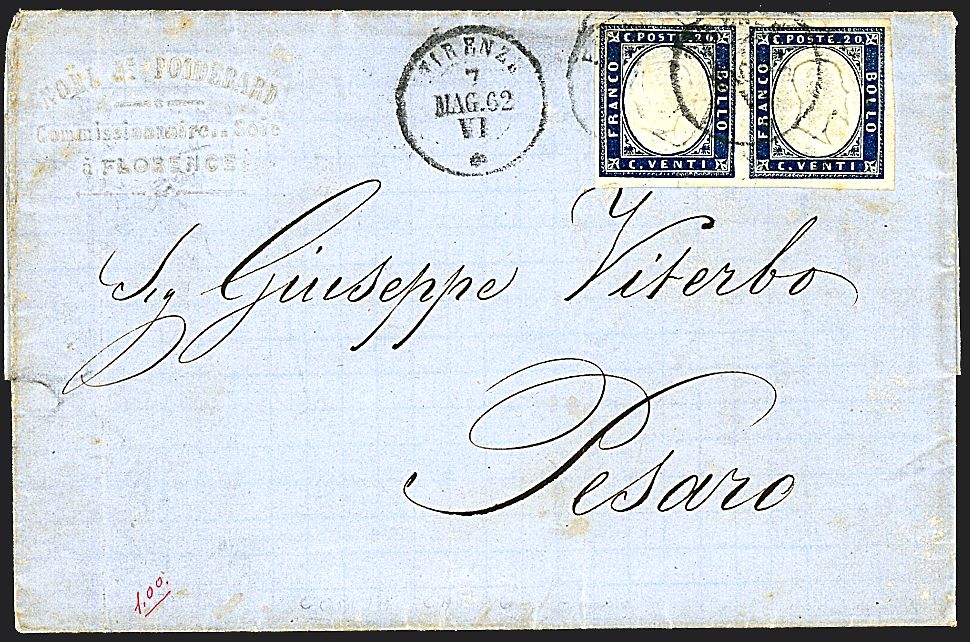 FIRENZE
7
MAG.62
VI
C. POSTE. 20
FRANCO
BOLLO
C. VENTI
C. POSTE. 20
FRANCO
BOLLO
C. VENTI
Commissionnaire en Soie
à FLORENCE
Sig Giuseppe Viterbo
Pesaro
1.00.